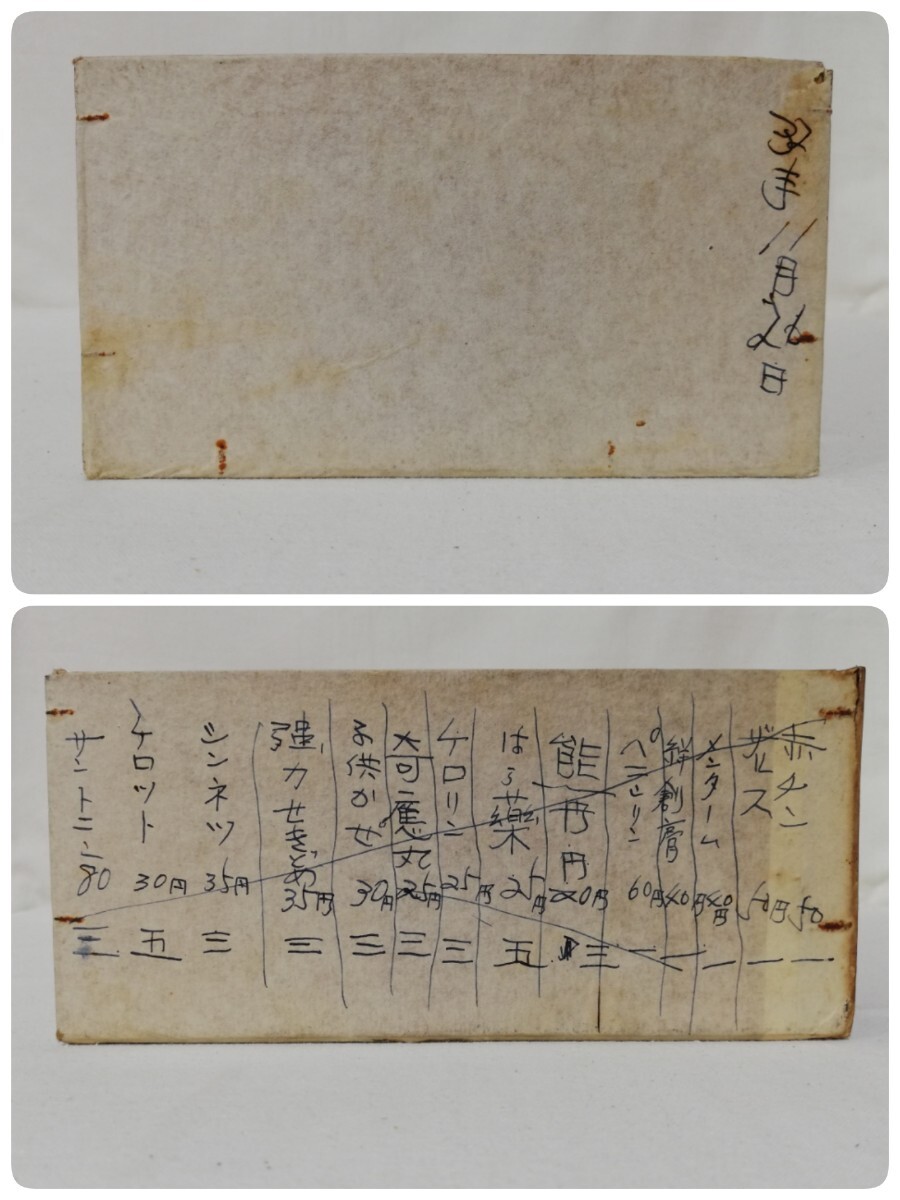 11月26日
赤チン 50 一
ザルス 50円 一
メンターム 40円 一
絆創膏 40円 一
ペニシリン 60円 一
能丹円 20円 三
はら薬 25円 五
ケロリン 25円 三
大可應丸 25円 三
子供かぜ 30円 三
強力せきどめ 35円 三
シンネツ 35円 三
ケロット 30円 五
サントニン 80 三